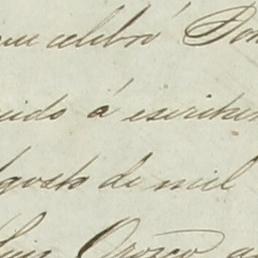 que celebró Don
uido á escritura
Agosto de mil
Luis Orozco